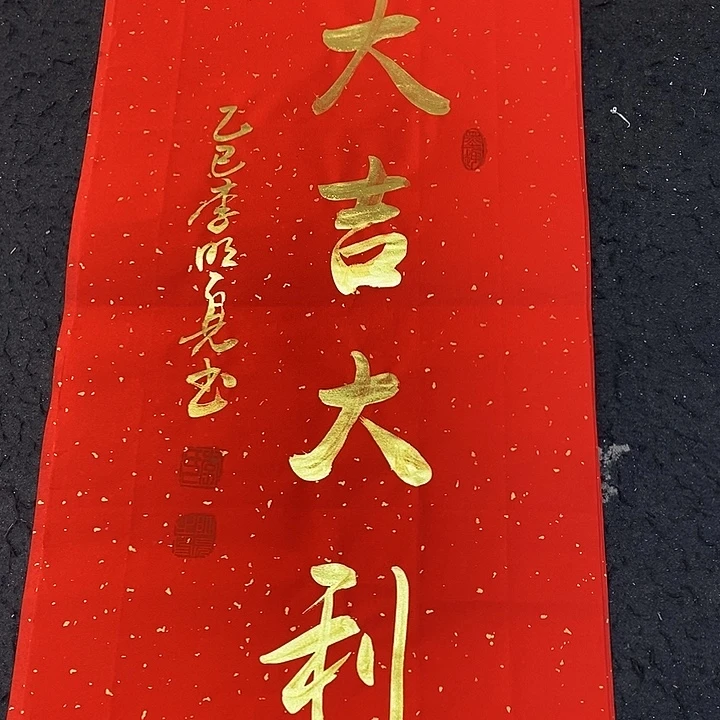 大吉大利
乙巳李明亮书